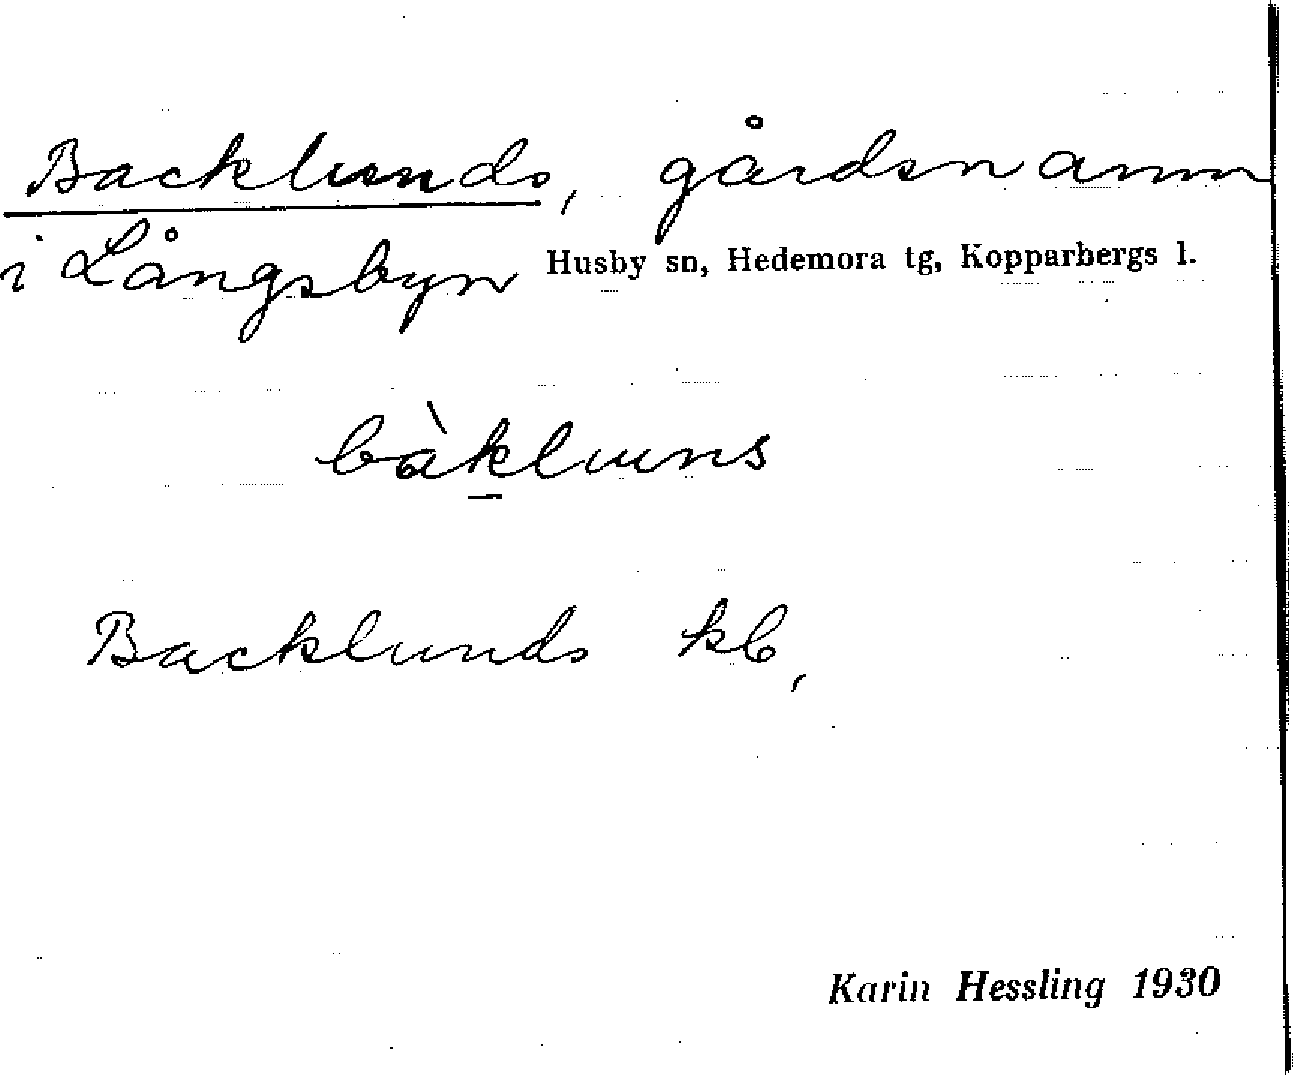 Backlunds, gårdsnamn
i Långsbyn Husby sn, Hedemora tg, Kopparbergs l.
bàkluns
Backlunds kb,
Karin Hessling 1930